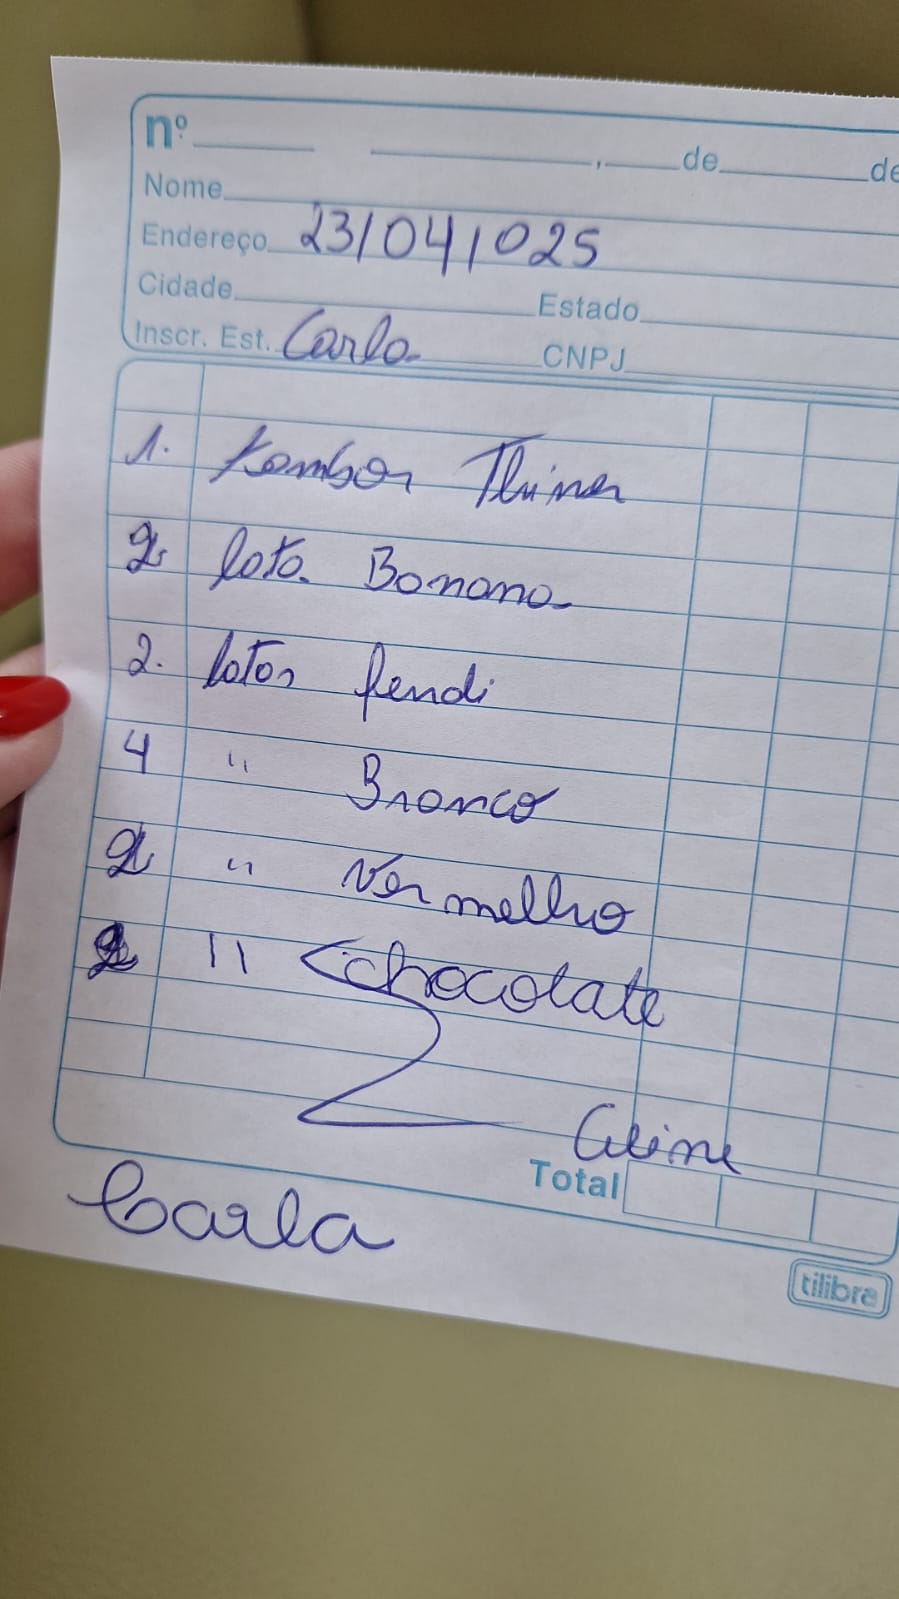 nº ____ ____, ____ de ____ de
Nome
Endereço 23/04/025
Cidade Estado
Inscr. Est. Carla CNPJ
1. Tambor Thiner
2 lata Banana
2. latas fendi
4 " Branco
2 " Vermelho
2 " chocolate
Celine
Total
Carla
tilibra